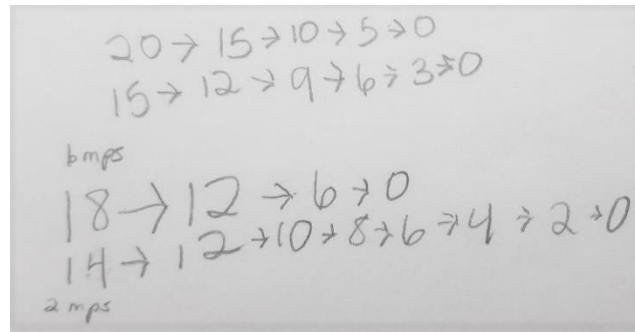 20→15→10→5→0
15→12→9→6→3→0
6 mps
18→12→6→0
14→12→10→8→6→4→2→0
2 mps